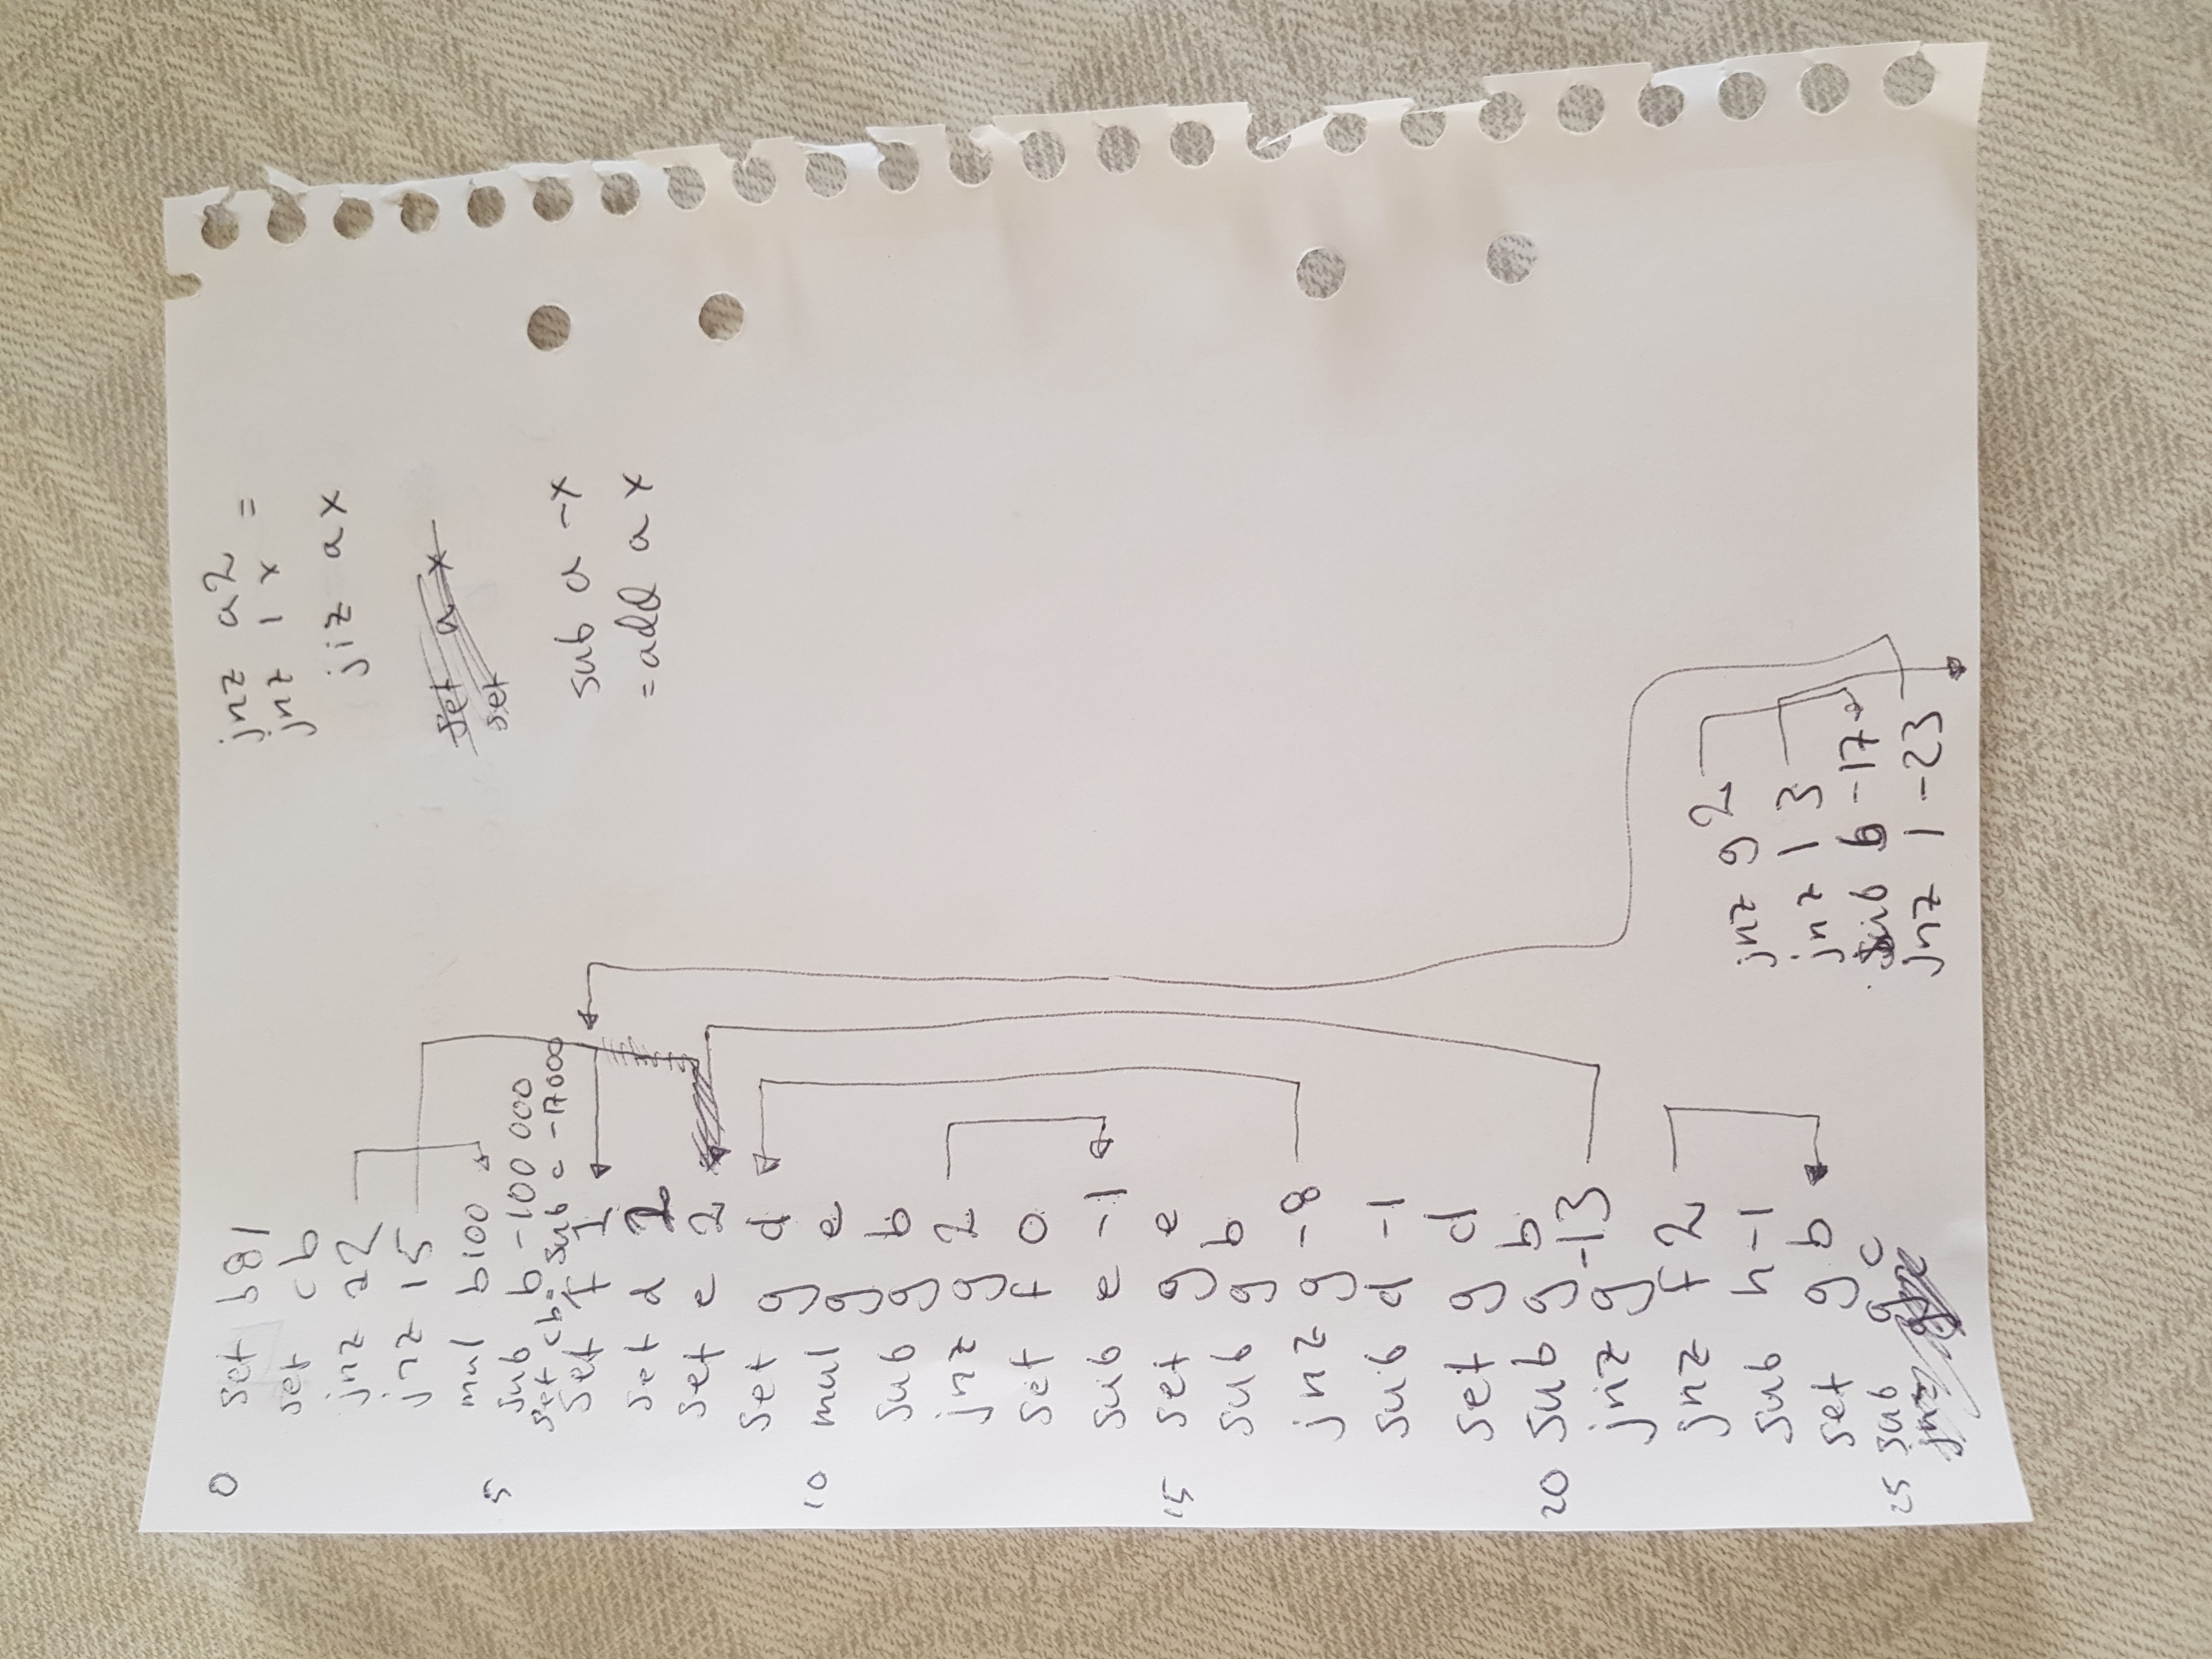 0 set b 81
set c b
jnz a 2
jnz 1 5
mul b 100
5 sub b -100 000
set c b; sub c -17000
set f 1
set d 2
set e 2
set g d
10 mul g e
sub g b
jnz g 2
set f 0
sub e -1
15 set g e
sub g b
jnz g -8
sub d -1
set g d
20 sub g b
jnz g -13
jnz f 2
sub h -1
set g b
25 sub g c
jnz g
jnz g 2
jnz 1 3
sub b -17
jnz 1 -23
jnz a 2
jnz 1 x =
jiz a x
set a x
set
sub a -x
= add a x